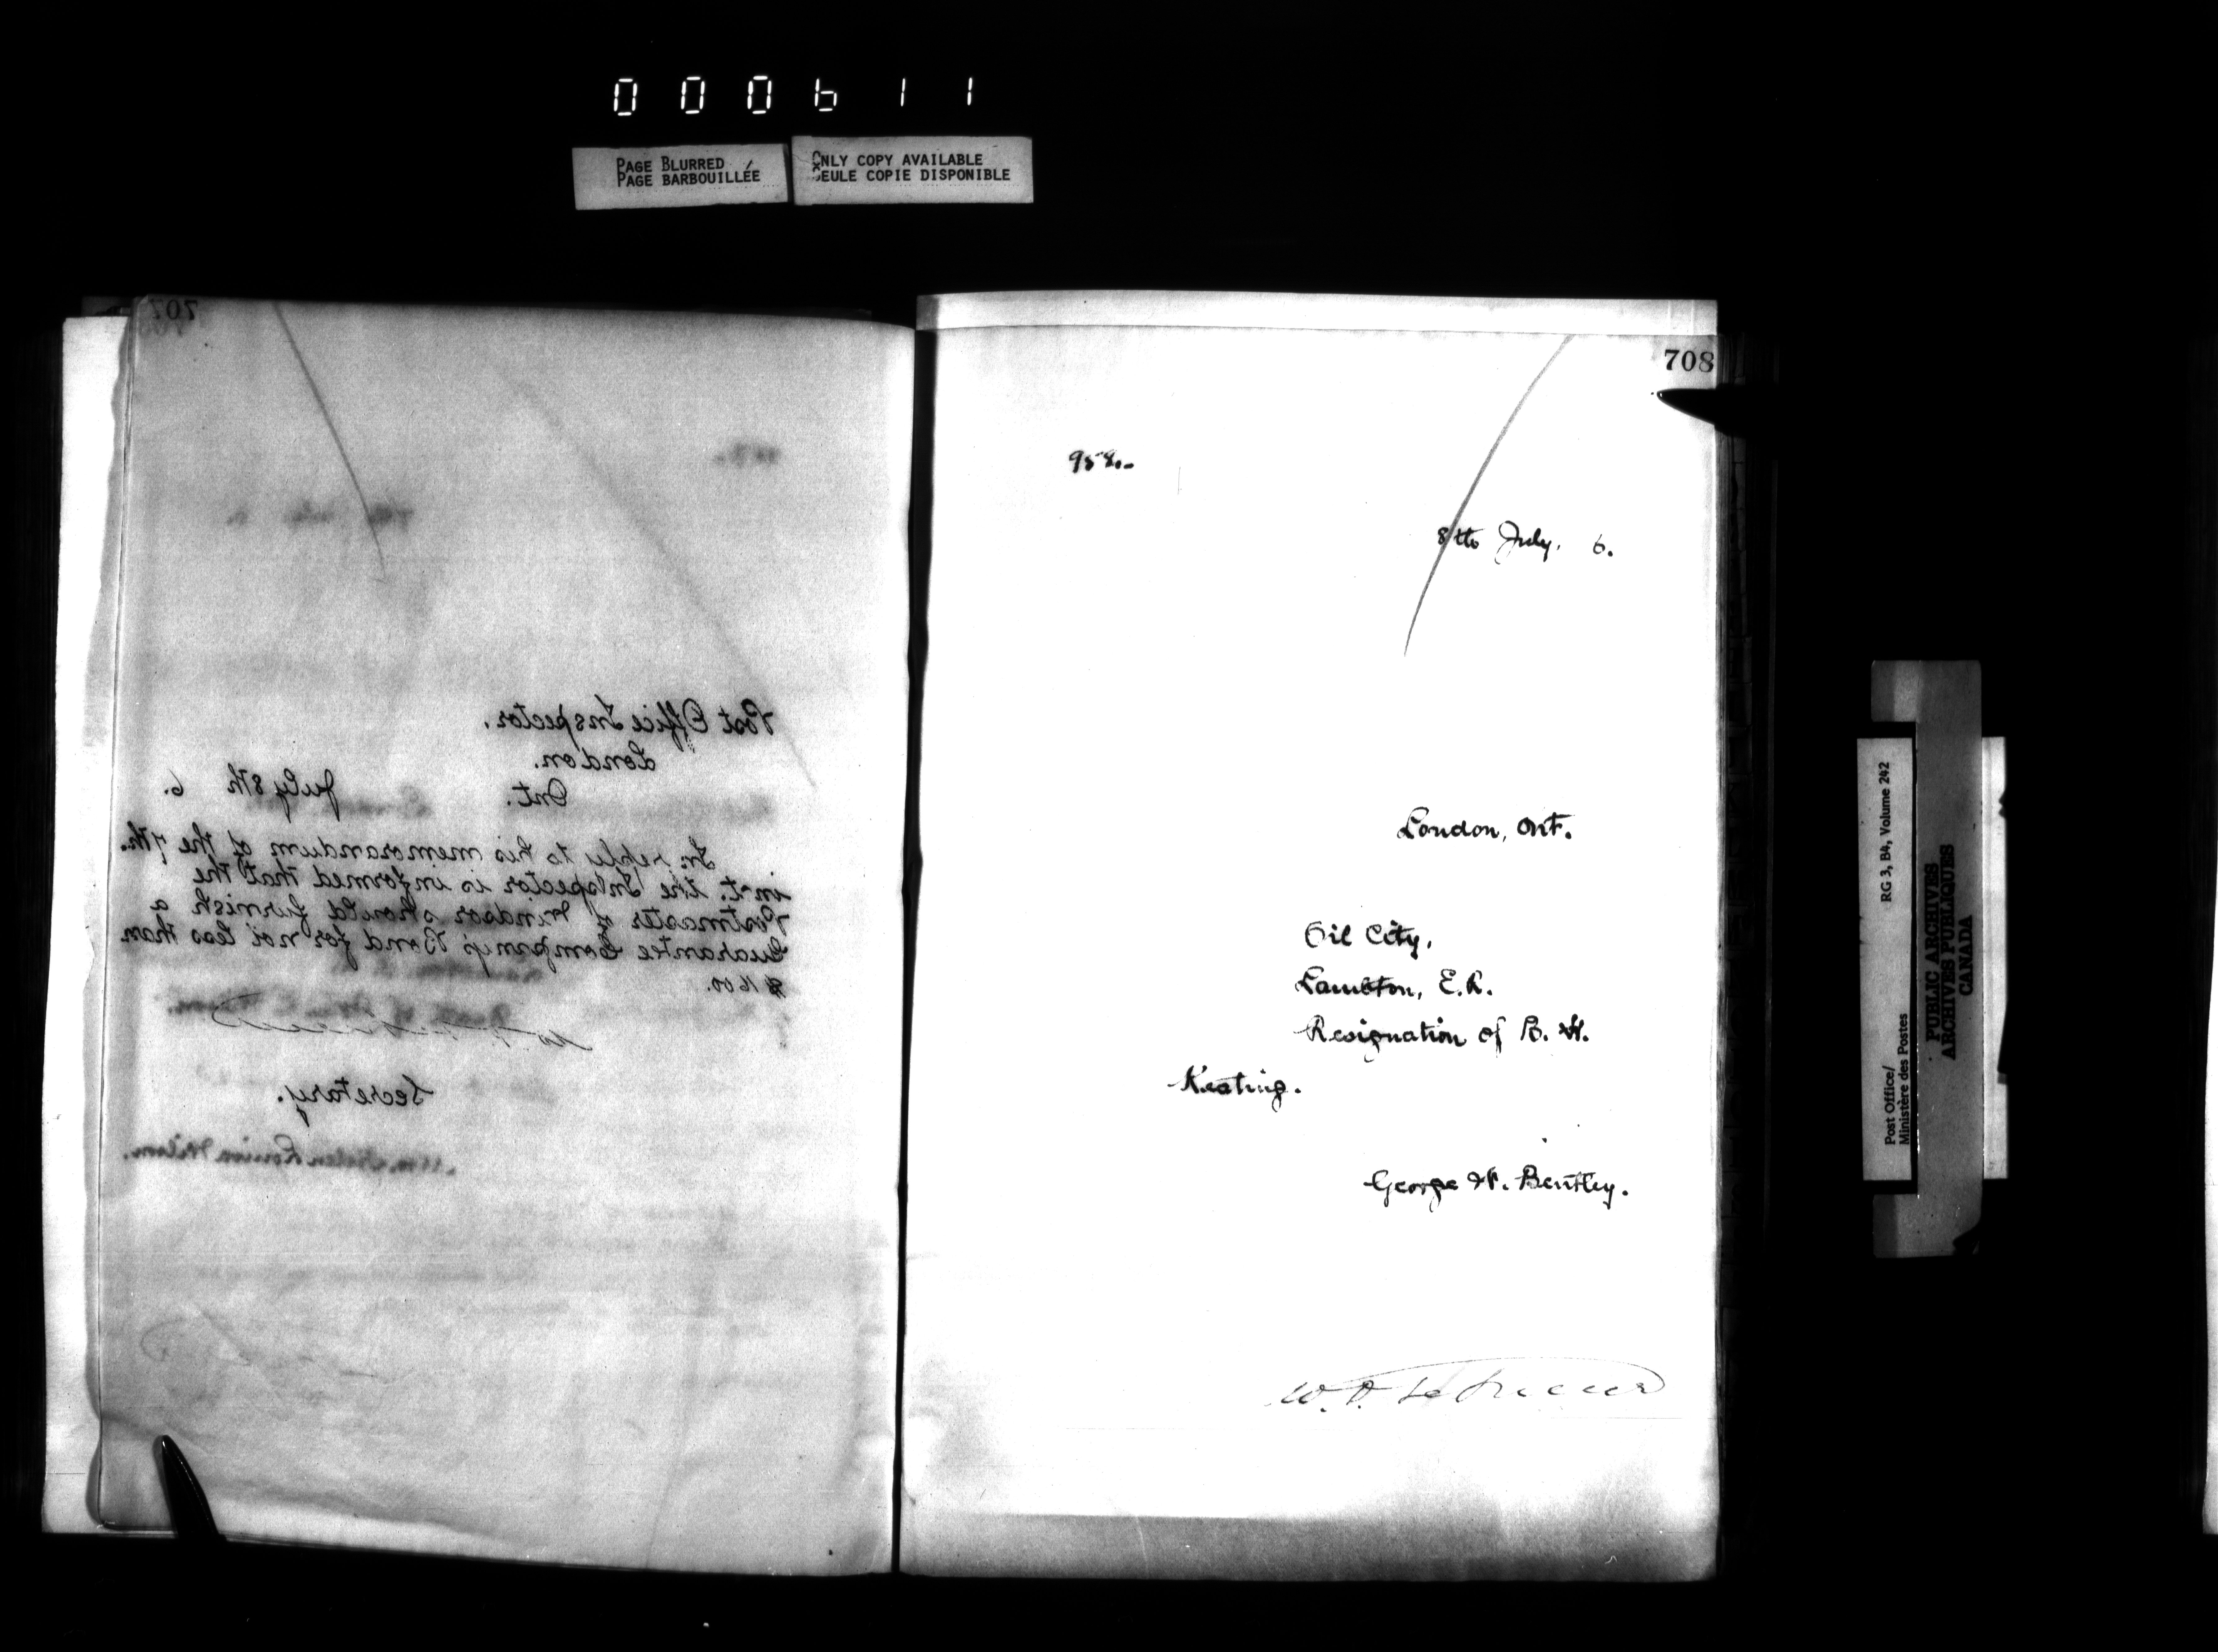 000611
PAGE BLURRED
PAGE BARBOUILLÉE
ONLY COPY AVAILABLE
SEULE COPIE DISPONIBLE
707
Post Office Inspector.
London.
Ont. July 8th 6.
In reply to his memorandum of the 7th.
inst. the Inspector is informed that the
Postmaster of Windsor should furnish a
Guarantee Company's Bond for not less than
$1600.
Secretary.
Helen Louisa Wilson.
708
958.-
8th July, 6.
London, Ont.
Oil City,
Lambton, E.R.
Resignation of
Keating.
George W. Bentley.
RG 3, B4, Volume 242
Post Office/
Ministère des Postes
PUBLIC ARCHIVES
ARCHIVES PUBLIQUES
CANADA